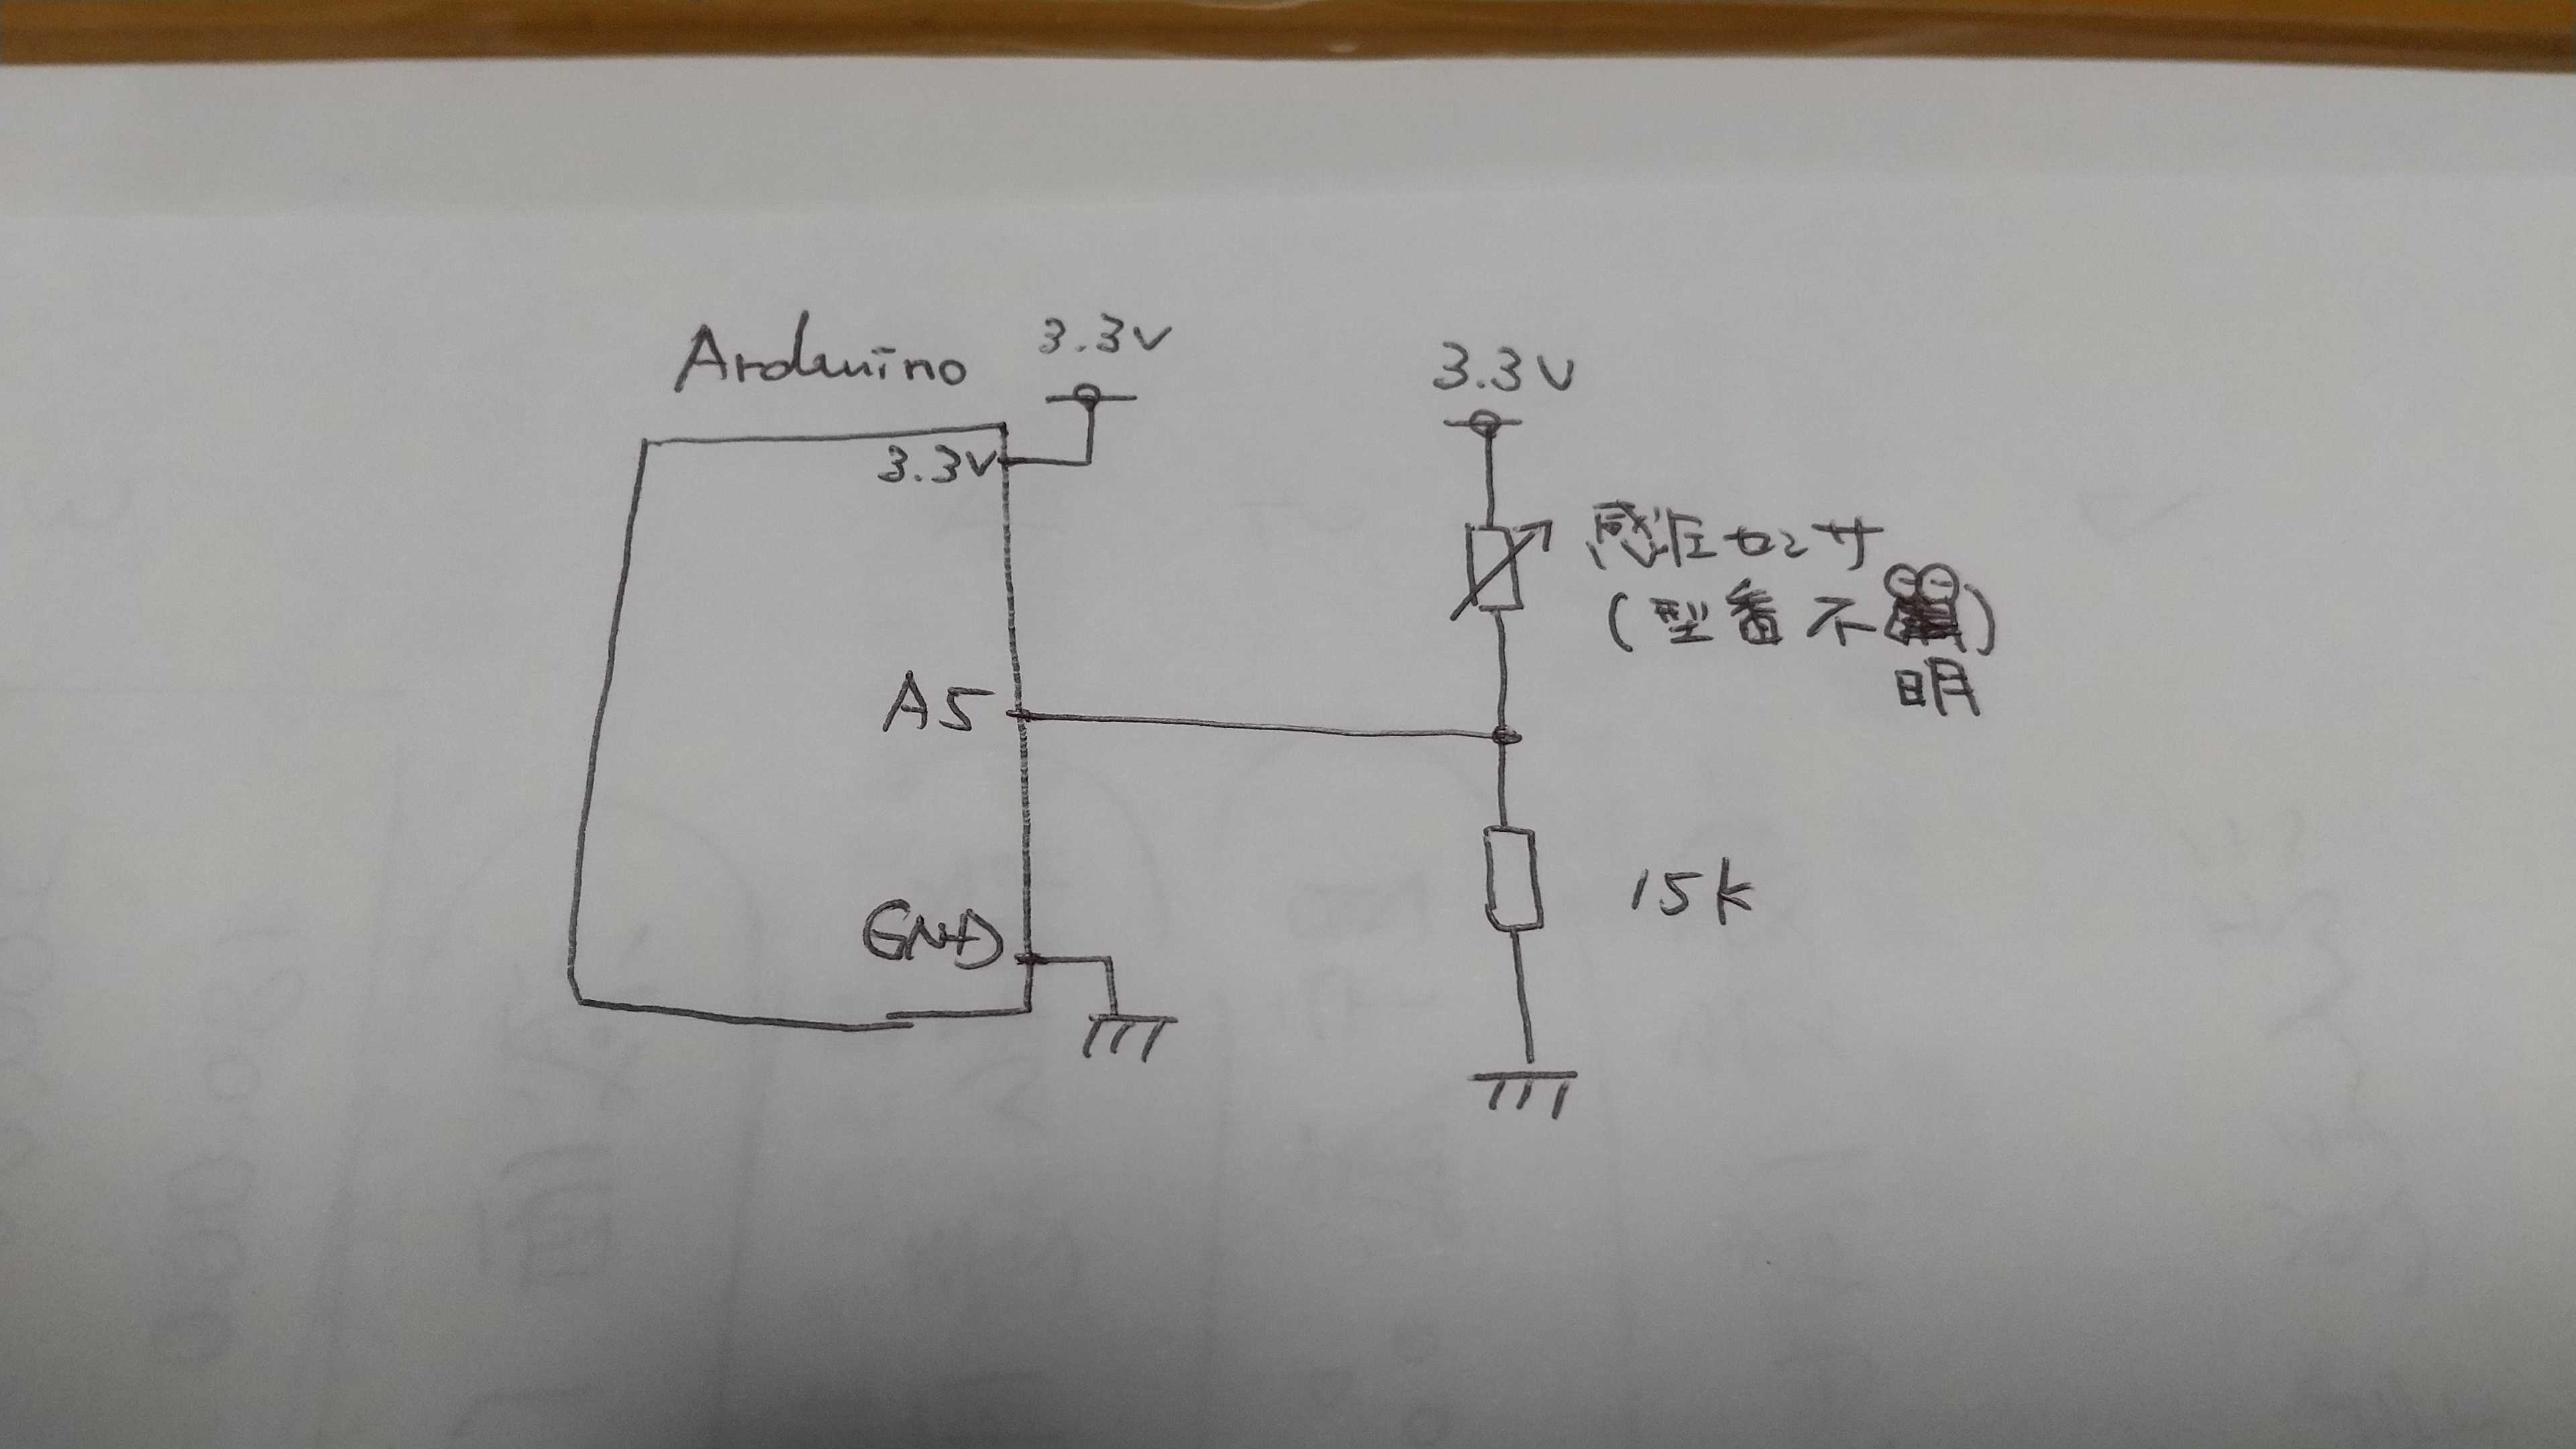 Arduino
3.3V
3.3V
A5
GND
3.3V
感圧センサ
(型番不)
明
15k